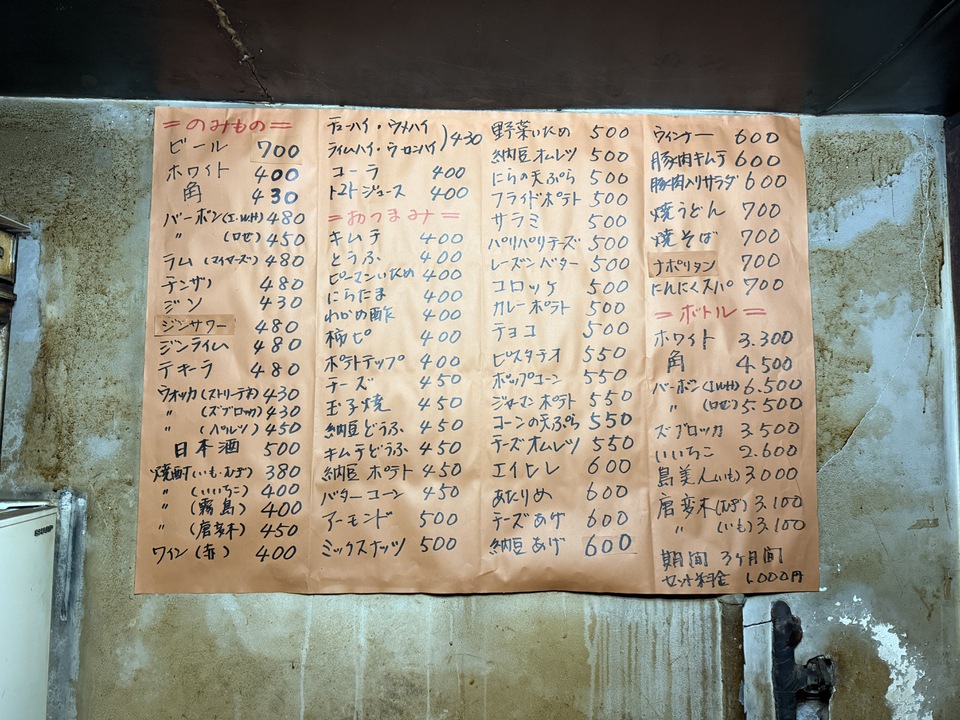 =のみもの=
ビール 700
ホワイト 400
角 430
バーボン(I.W.H) 480
〃 (ロゼ) 450
ラム (マイヤーズ) 480
チンザノ 480
ジン 430
ジンサワー 480
ジンライム 480
テキーラ 480
ウォッカ(ストリチナ) 430
〃 (ズブロッカ) 430
〃 (バルツ) 450
日本酒 500
焼酎(いも・むぎ) 380
〃 (いいちこ) 400
〃 (霧島) 400
〃 (唐変木) 450
ワイン (赤) 400
チューハイ・ウメハイ
ライムハイ・ウーロンハイ ) 430
コーラ 400
トマトジュース 400
=おつまみ=
キムチ 400
とうふ 400
ピーマンいため 400
にらたま 400
わかめ酢 400
柿ピ 400
ポテトチップ 400
チーズ 450
玉子焼 450
納豆どうふ 450
キムチどうふ 450
納豆ポテト 450
バターコーン 450
アーモンド 500
ミックスナッツ 500
野菜いため 500
納豆オムレツ 500
にらの天ぷら 500
フライドポテト 500
サラミ 500
パリパリチーズ 500
レーズンバター 500
コロッケ 500
カレーポテト 500
チョコ 500
ピスタチオ 550
ポップコーン 550
ジャーマンポテト 550
コーンの天ぷら 550
チーズオムレツ 550
エイヒレ 600
あたりめ 600
チーズあげ 600
納豆あげ 600
ウィンナー 600
豚肉キムチ 600
豚肉入りサラダ 600
焼うどん 700
焼そば 700
ナポリタン 700
にんにくスパ 700
=ボトル=
ホワイト 3.300
角 4.500
バーボン(I.W.H) 6.500
〃 (ロゼ) 5.500
ズブロッカ 3.500
いいちこ 2.600
島美人(いも) 3.000
唐変木(むぎ) 3.100
〃 (いも) 3.100
期間 3ヶ月間
セット料金 1.000円
SHARP